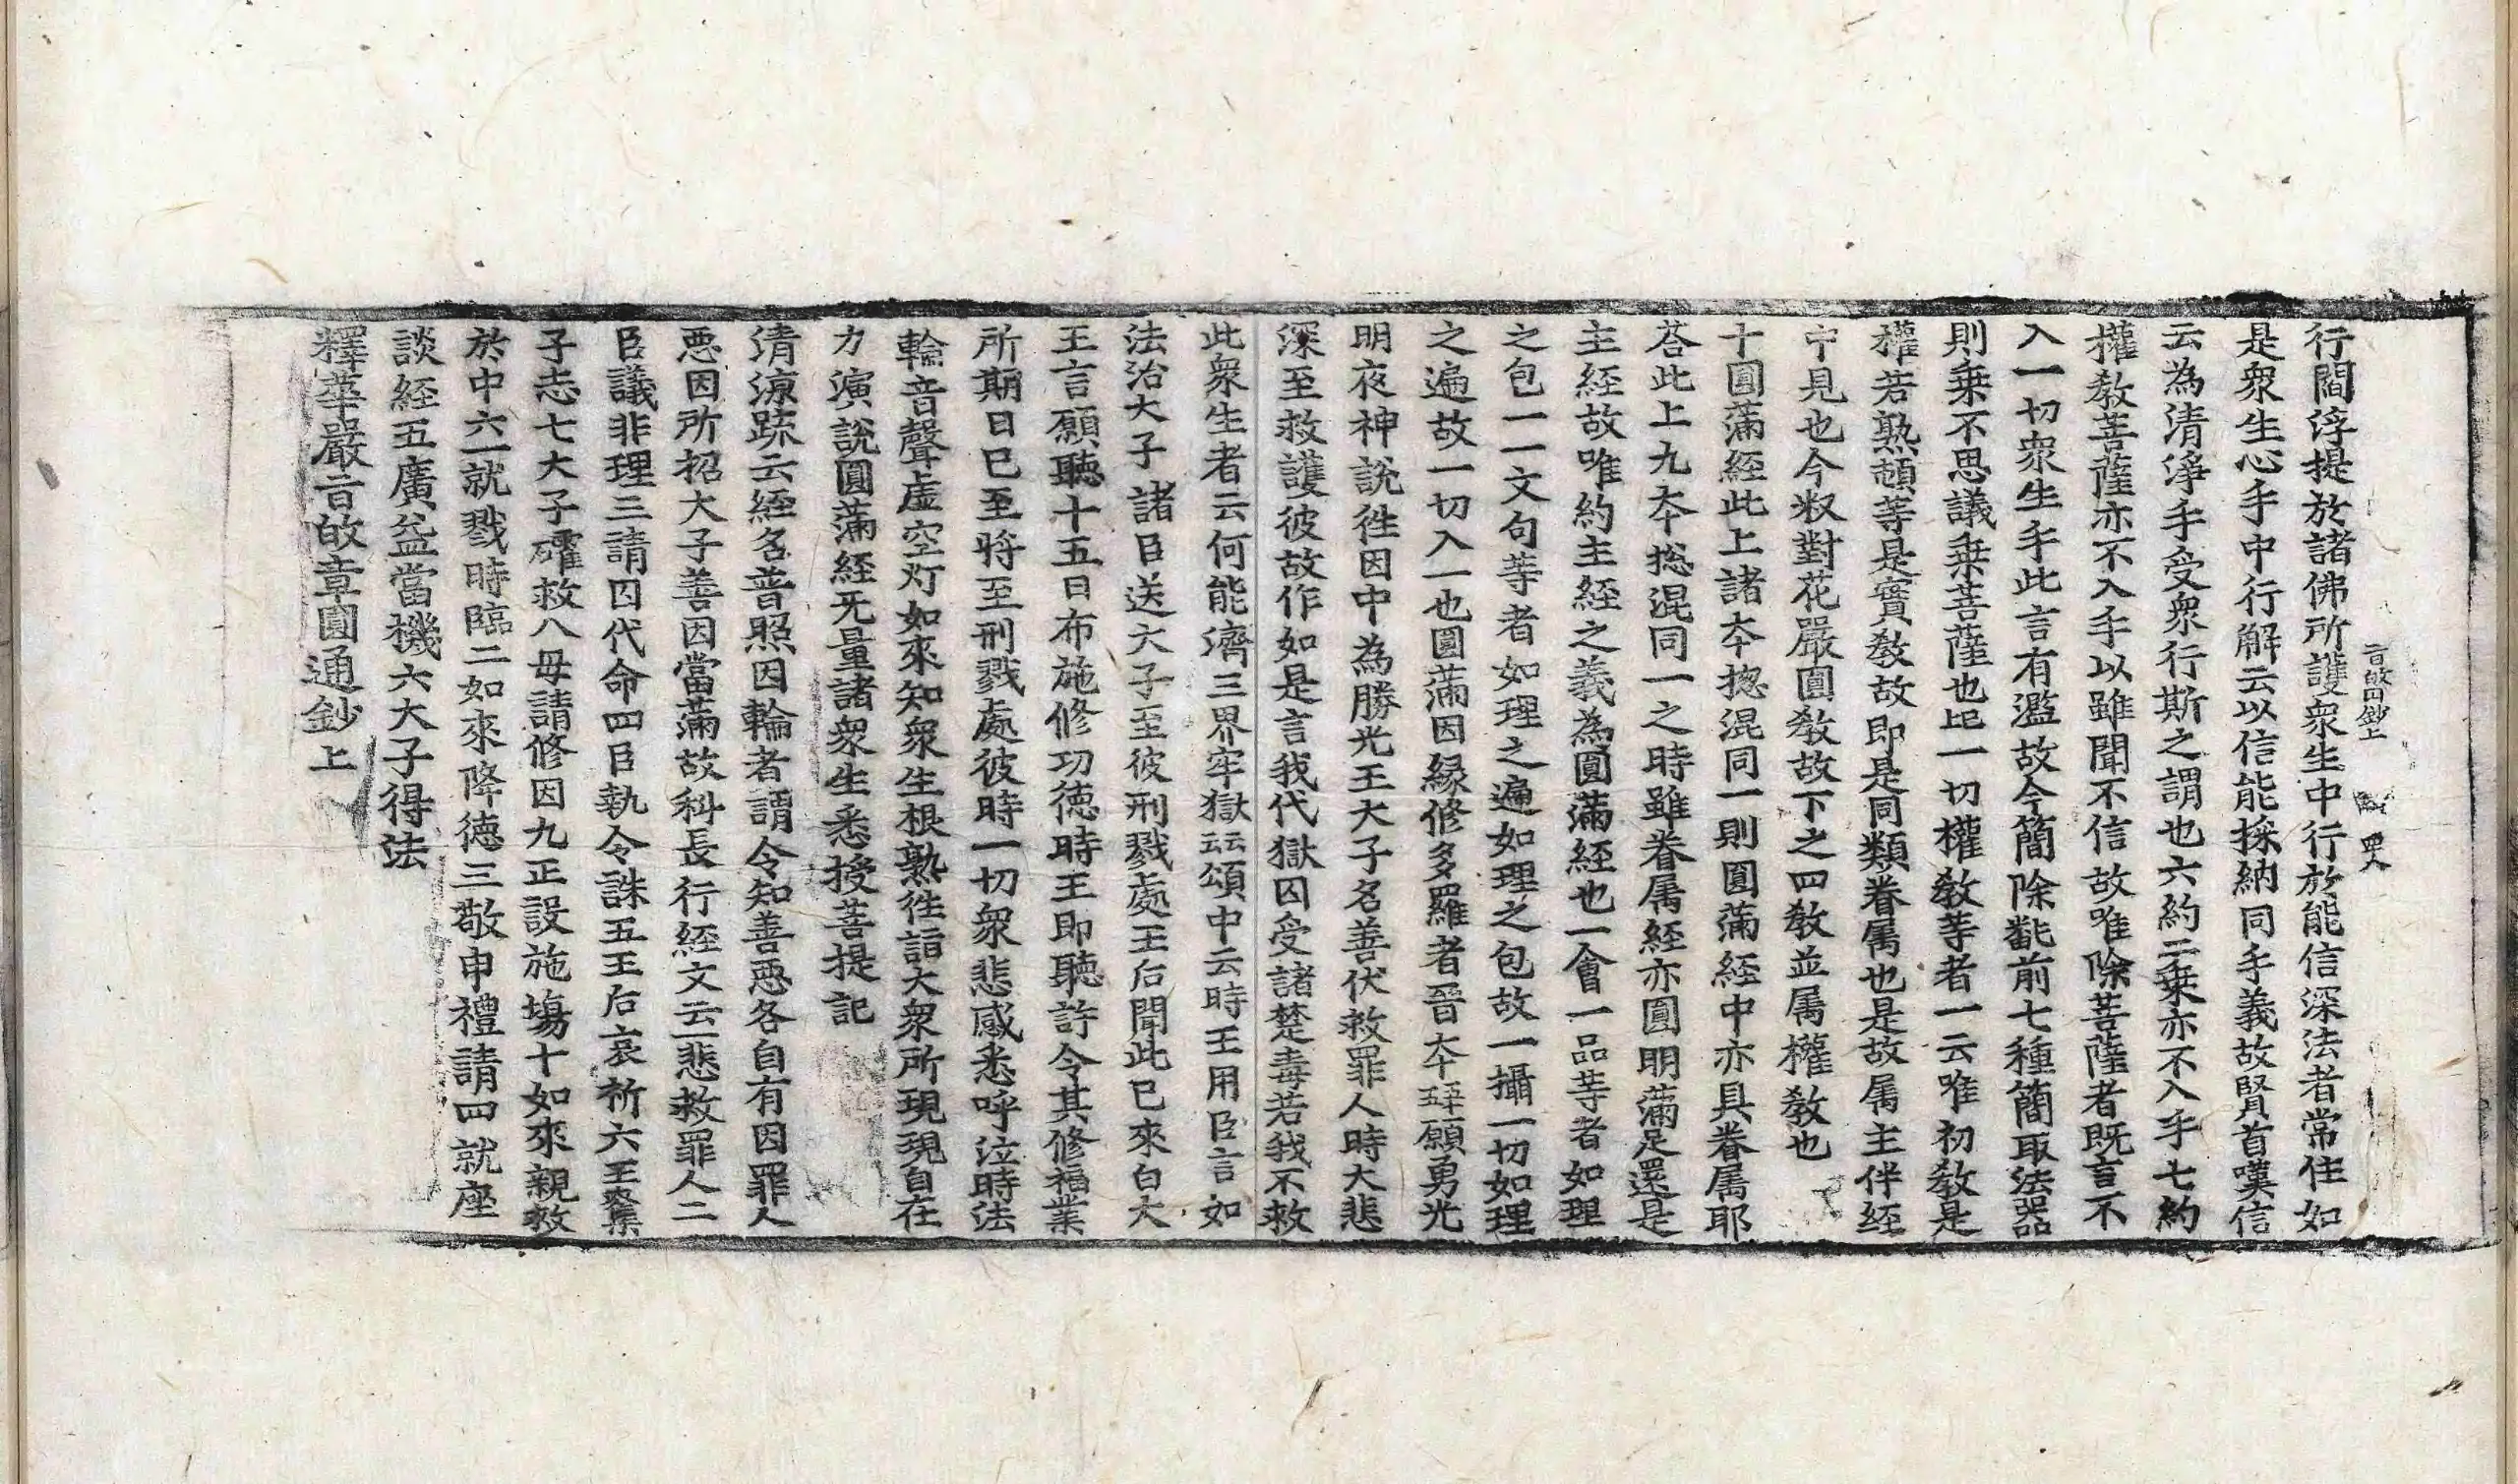 旨䢖鈔上 四十八
行閻浮提於諸佛所護衆生中行於能信深法者常住如
是衆生心手中行解云以信能採納同手義故賢首嘆信
云為清淨手受衆行斯之謂也六約二乗亦不入手七約
權敎菩薩亦不入手以雖聞不信故唯除菩薩者旣言不
入一切衆生手此言有濫故今簡除㲋前七種簡取法器
則乗不思議乗菩薩也㠯一切權敎等者一云唯初敎是
權若熟頓等是實敎故即是同類眷属也是故属主伴經
中見也今㭁對花嚴圓敎故下之四敎並属權敎也
十圓滿經此上諸夲揔混同一則圓滿經中亦具眷属耶
荅此上九夲捴混同一之時雖眷属經亦圓明滿足還是
主經故唯約主經之義為圓滿經也一會一品等者如理
之包一一文句等者如理之遍如理之包故一攝一切如理
之遍故一切入一也圓滿因縁修多羅者晉夲䛒願勇光
明夜神說徃因中為勝光王大子名善伏救罪人時大悲
深至救護彼故作如是言我代獄囚受諸楚毒若我不救
此衆生者云何能濟三界牢獄云云頌中云時王用臣言如
法治大子諸臣送大子至彼刑戮處王后聞此已來白大
王言願聽十五日布施修功徳時王即聽許令其修福業
所期日已至將至刑戮處彼時一切衆悲感悉呼泣時法
輪音聲虚空灯如來知衆生根熟徃詣大衆所現現自在
力演說圓滿經无量諸衆生悉授菩提記
清涼䟽云經名普照因輪者謂令知善惡各自有因罪人
惡因所招大子善因當滿故科長行經文云一悲救罪人二
臣議非理三請囚代命四臣執令誅五王后哀祈六王察集
子志七大子確救八毋請修因九正設施塲十如來親救
於中六一就戮時臨二如來降徳三敬申禮請四就座
談經五廣益當機六大子得法
釋華嚴旨䢖章圓通鈔上